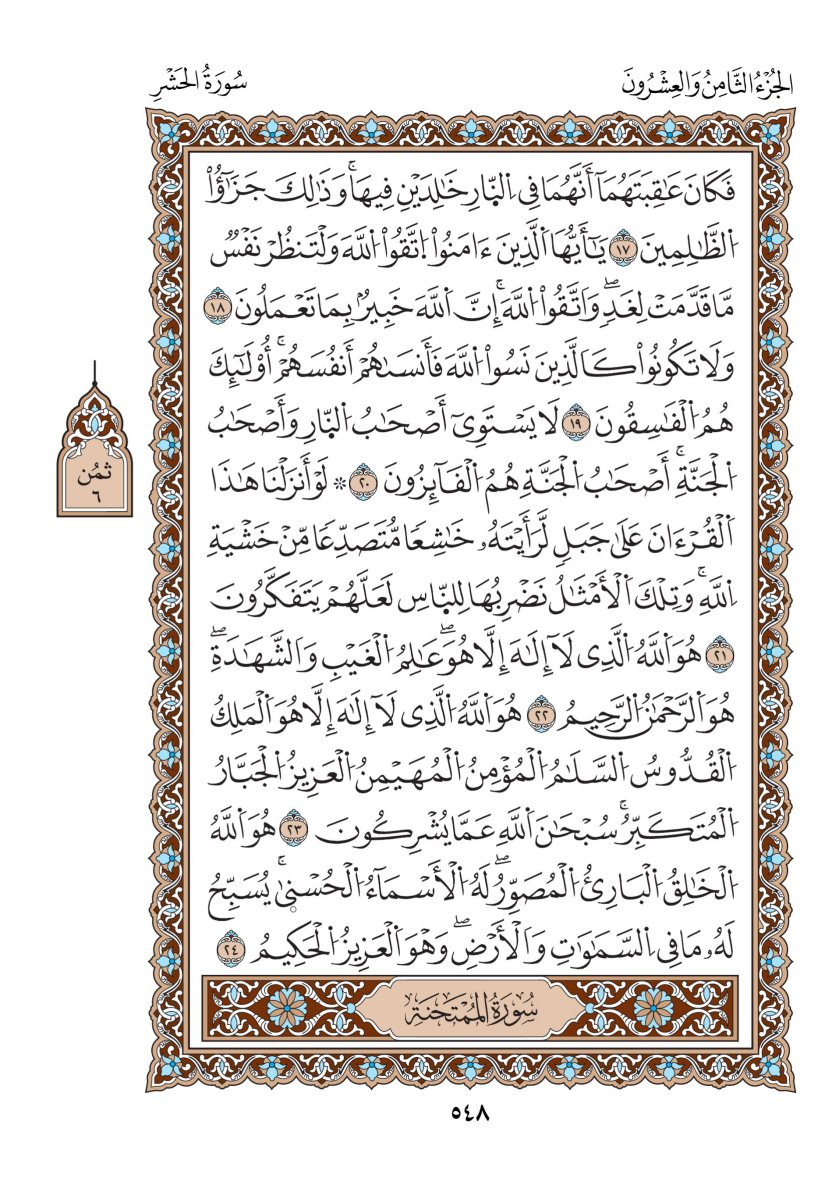 الجُزْءُ الثَّامِنُ وَالعِشْرُونَ
سُورَةُ الحَشْرِ
فَكَانَ عَٰقِبَتَهُمَآ أَنَّهُمَا فِي اِ۬لنّ۪ارِ خَٰلِدَيْنِ فِيهَاۚ وَذَٰلِكَ جَزَٰٓؤُاْ
اُ۬لظَّٰلِمِينَ ١٧ يَٰٓأَيُّهَا اَ۬لَّذِينَ ءَامَنُواْ اُ۪تَّقُواْ اُ۬للَّهَ وَلْتَنظُرْ نَفْسٞ
مَّا قَدَّمَتْ لِغَدٖۖ وَاَتَّقُواْ اُ۬للَّهَۚ إِنَّ اَ۬للَّهَ خَبِيرُۢ بِمَا تَعْمَلُونَ ١٨
وَلَا تَكُونُواْ كَالَّذِينَ نَسُواْ اُ۬للَّهَ فَأَنسَىٰهُمْ أَنفُسَهُمْۚ أُوْلَٰٓئِكَ
هُمُ اُ۬لْفَٰسِقُونَ ١٩ لَا يَسْتَوِيٓ أَصْحَٰبُ اُ۬لنّ۪ارِ وَأَصْحَٰبُ
اُ۬لْجَنَّةِۚ أَصْحَٰبُ اُ۬لْجَنَّةِ هُمُ اُ۬لْفَآئِزُونَ ٢٠ ۞ لَوْ أَنزَلْنَا هَٰذَا
اَ۬لْقُرْءَانَ عَلَىٰ جَبَلٖ لَّرَأَيْتَهُۥ خَٰشِعٗا مُّتَصَدِّعٗا مِّنْ خَشْيَةِ
اِ۬للَّهِۚ وَتِلْكَ اَ۬لْأَمْثَٰلُ نَضْرِبُهَا لِلنّ۪اسِ لَعَلَّهُمْ يَتَفَكَّرُونَ
٢١ هُوَ اَ۬للَّهُ اُ۬لَّذِي لَآ إِلَٰهَ إِلَّا هُوَۖ عَٰلِمُ اُ۬لْغَيْبِ وَالشَّهَٰدَةِۖ
هُوَ اَ۬لرَّحْمَٰنُ اُ۬لرَّحِيمُ ٢٢ هُوَ اَ۬للَّهُ اُ۬لَّذِي لَآ إِلَٰهَ إِلَّا هُوَ اَ۬لْمَلِكُ
اُ۬لْقُدُّوسُ اُ۬لسَّلَٰمُ اُ۬لْمُؤْمِنُ اُ۬لْمُهَيْمِنُ اُ۬لْعَزِيزُ اُ۬لْجَبَّارُ
اُ۬لْمُتَكَبِّرُۚ سُبْحَٰنَ اَ۬للَّهِ عَمَّا يُشْرِكُونَ ٢٣ هُوَ اَ۬للَّهُ
اُ۬لْخَٰلِقُ اُ۬لْبَارِئُ اُ۬لْمُصَوِّرُۖ لَهُ اُ۬لْأَسْمَآءُ اُ۬لْحُسْن۪ىٰۚ يُسَبِّحُ
لَهُۥ مَا فِي اِ۬لسَّمَٰوَٰتِ وَالْأَرْضِۖ وَهْوَ اَ۬لْعَزِيزُ اُ۬لْحَكِيمُ ٢٤
سُورَةُ المُمْتَحنَةِ
ثمُن
٦
٥٤٨